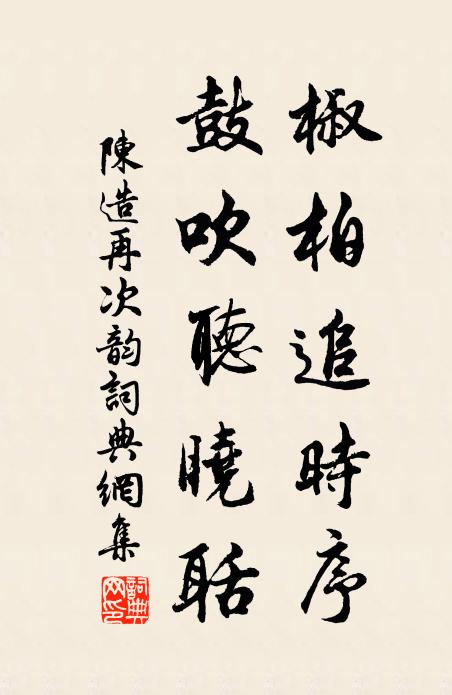 椒柏追時序
鼓吹聽曉聒
陳造再次韵詞典網集
詞典網印